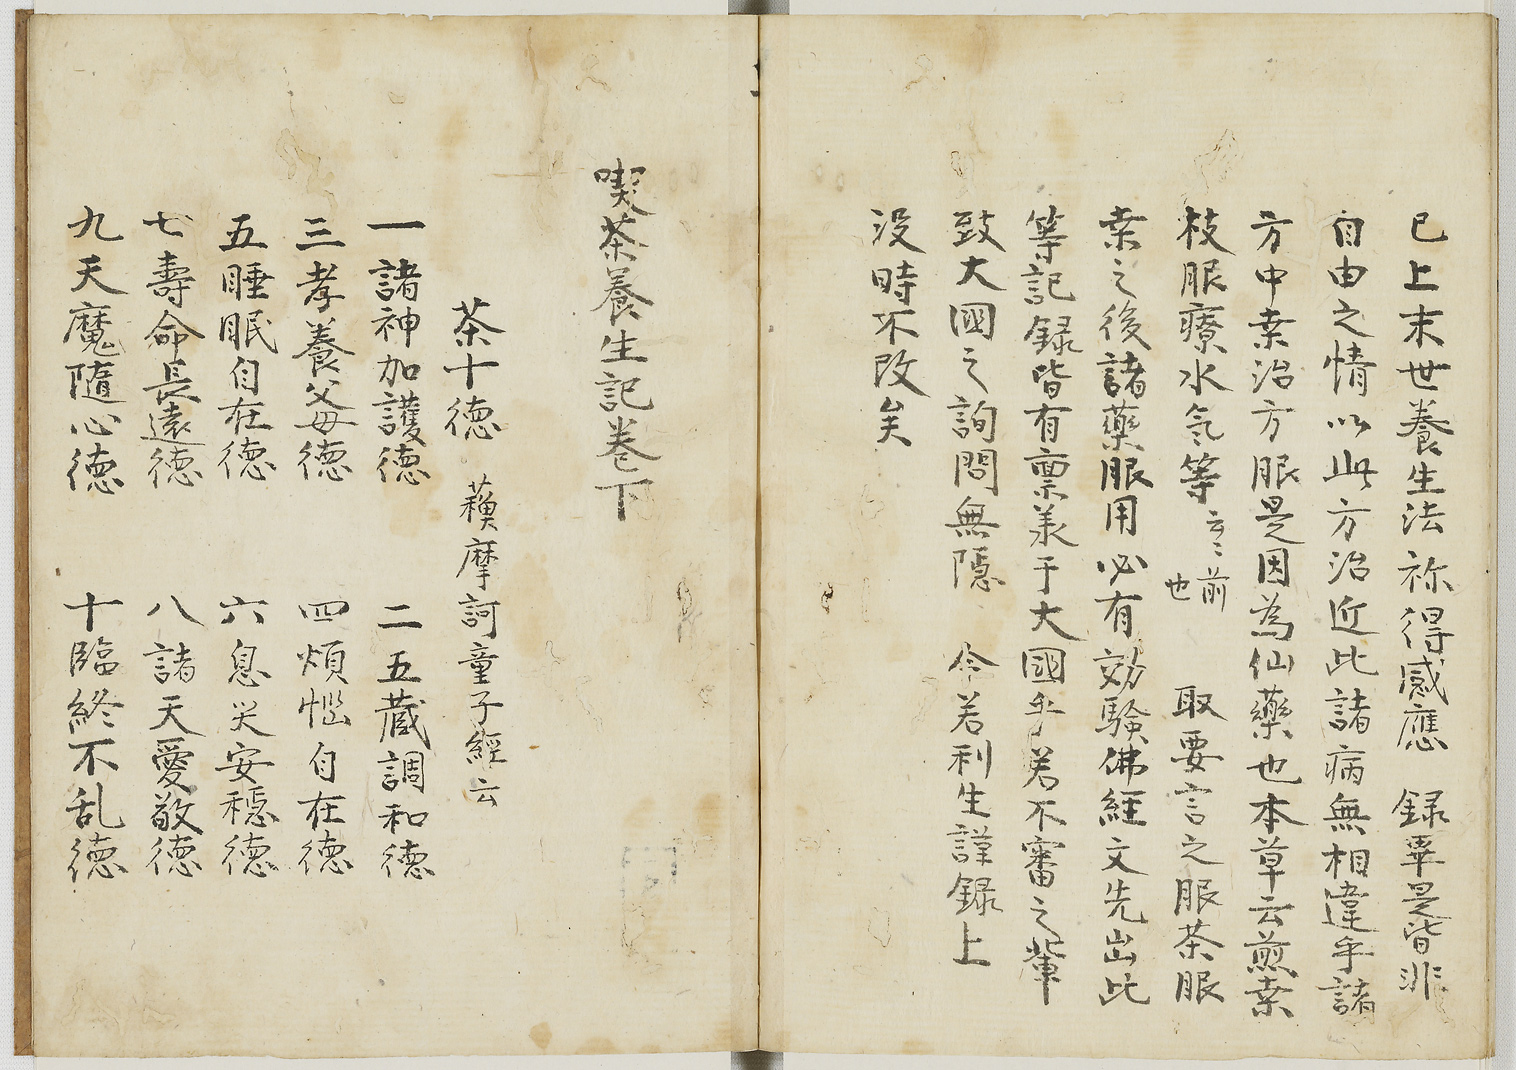 已上末世養生法祢得感應 録畢是皆非
自由之情以此方治近比諸病無相違乎諸
方中桒治方服是因為仙藥也本草云煎桒
枝服療水氣等云〻前也 取要言之服茶服
桒之後諸藥服用必有効驗佛經文先出此
等記録皆有稟羕于大國乎若不審之輩
致大國之詢問無隠 令若利生謹録上
没時不改矣
喫茶養生記卷下
茶十德 摩訶童子經云
一諸神加護德 二五蔵調和德
三孝養父母德 四煩惱自在德
五睡眠自在德 六息災安穩德
七壽命長遠德 八諸天愛敬德
九天魔隨心德 十臨終不乱德